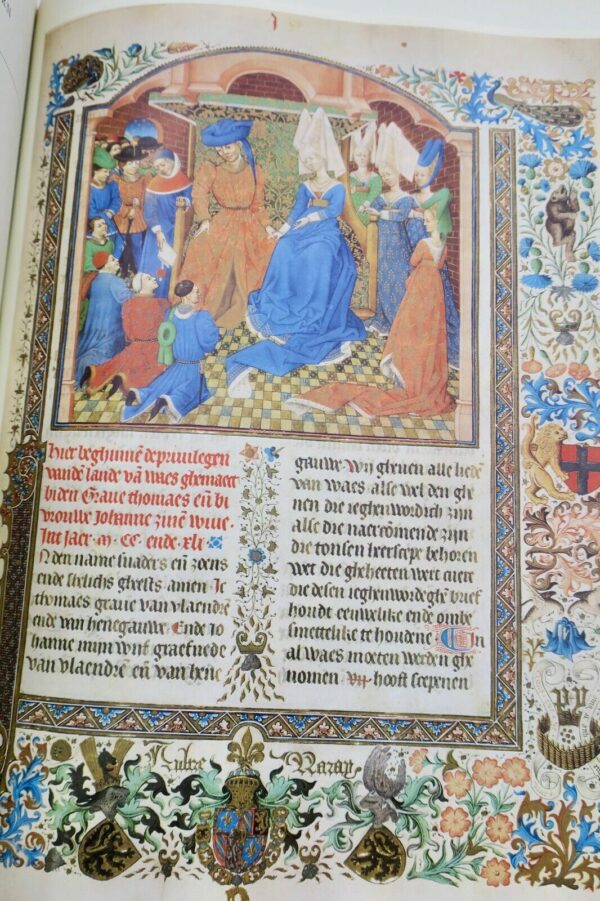 hier beghinnē de priuilegen
vandē lande vā waes ghemaect
bi den Graue thomaes eñ bi
vrouwe Iohanne zinē wiue.
Int jaer . m . CC . ende . xli .
In den name svaders eñ zoens
ende shelichs gheests amen . Ic
thomaes graue van vlaendrē
ende van henegauwe . Ende Jo
hanne mijn wijf graefnede
van vlaendrē eñ van hene
gauwe . wij gheuen alle liedē
van waes alse wel den ghe
nen die ieghenwordich zijn
alse die naercomende zijn
die tonsen heerscepe behoren
wet die gheheeten wert cuere
die desen ieghenwordeghē brief
houdt eeuwelike ende onbe
smettelike te houdene Jn
al waes moeten werden ghe
nomen . vii . hooft scepenen